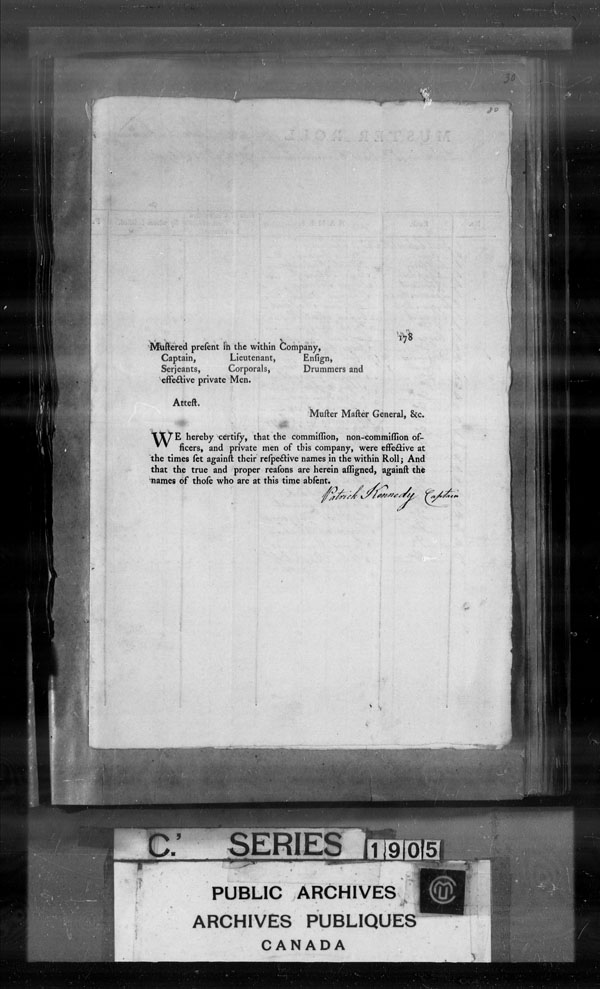 30
30
MUSTER ROLL
178
Muſtered preſent in the within Company,
Captain, Lieutenant, Enſign,
Serjeants, Corporals, Drummers and
effective private Men.
Atteſt.
Muſter Maſter General, &c.
WE hereby certify, that the commiſſion, non-commiſſion of-
ficers, and private men of this company, were effective at
the times ſet againſt their reſpective names in the within Roll; And
that the true and proper reaſons are herein aſſigned, againſt the
names of thoſe who are at this time abſent.
Patrick Kennedy Captain
C.' SERIES 1905
PUBLIC ARCHIVES
ARCHIVES PUBLIQUES
CANADA